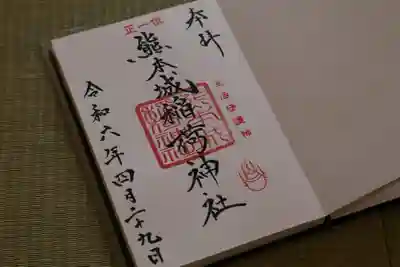 奉拝
正一位
熊本城稲荷神社
令和六年四月二十九日